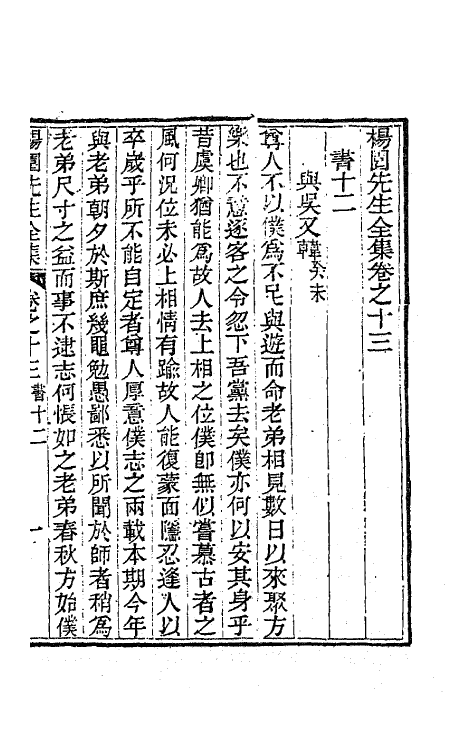 楊園先生全集卷之十三
書十二
與吳又韓癸未
尊人不以僕爲不足與遊而命老弟相見數日以來聚方
樂也不意逐客之令忽下吾黨去矣僕亦何以安其身乎
昔虞卿猶能爲故人去上相之位僕卽無似嘗慕古者之
風何況位未必上相情有踰故人能復蒙面隱忍逢人以
卒歲乎所不能自定者尊人厚意僕志之兩載本期今年
與老弟朝夕於斯庶幾黽勉愚鄙悉以所聞於師者稍爲
老弟尺寸之益而事不逮志何悵如之老弟春秋方始僕
楊園先生全集 卷之十三 書十二 一